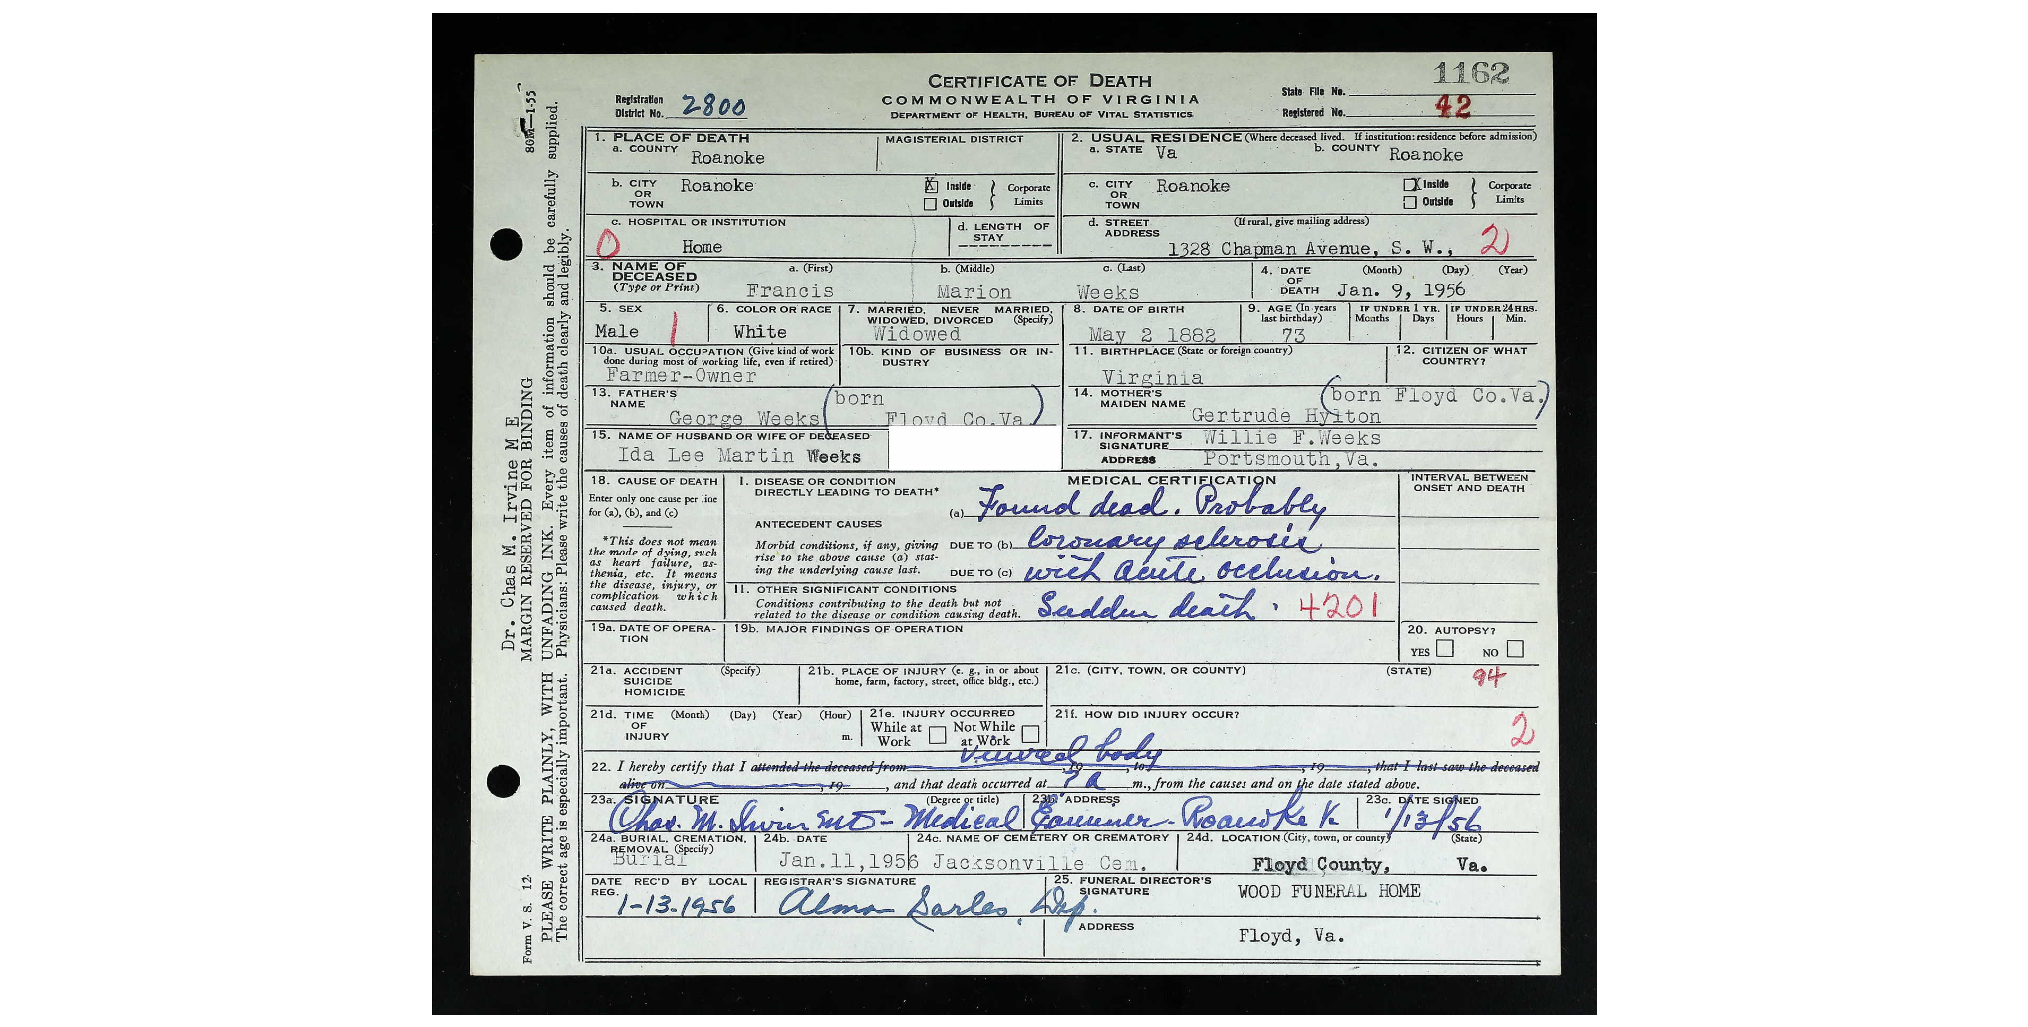 1162
CERTIFICATE OF DEATH
COMMONWEALTH OF VIRGINIA
DEPARTMENT OF HEALTH, BUREAU OF VITAL STATISTICS
Registration District No. 2800
State File No.
Registered No. 42
1. PLACE OF DEATH
a. COUNTY Roanoke
MAGISTERIAL DISTRICT
2. USUAL RESIDENCE (Where deceased lived. If institution: residence before admission)
a. STATE Va b. COUNTY Roanoke
b. CITY OR TOWN Roanoke X Inside Outside Corporate Limits
c. CITY OR TOWN Roanoke X Inside Outside Corporate Limits
c. HOSPITAL OR INSTITUTION
0 Home
d. LENGTH OF STAY ----------
d. STREET ADDRESS (If rural, give mailing address)
1328 Chapman Avenue, S. W., 2
3. NAME OF DECEASED (Type or Print)
a. (First) b. (Middle) c. (Last)
Francis Marion Weeks
4. DATE OF DEATH (Month) (Day) (Year)
Jan. 9, 1956
5. SEX
Male 1
6. COLOR OR RACE
White
7. MARRIED, NEVER MARRIED, WIDOWED, DIVORCED (Specify)
Widowed
8. DATE OF BIRTH
May 2 1882
9. AGE (In years last birthday)
73
IF UNDER 1 YR. Months Days
IF UNDER 24 HRS. Hours Min.
10a. USUAL OCCUPATION (Give kind of work done during most of working life, even if retired)
Farmer-Owner
10b. KIND OF BUSINESS OR INDUSTRY
11. BIRTHPLACE (State or foreign country)
Virginia
12. CITIZEN OF WHAT COUNTRY?
13. FATHER'S NAME
George Weeks (born Floyd Co.Va.)
14. MOTHER'S MAIDEN NAME (born Floyd Co.Va.)
Gertrude Hylton
15. NAME OF HUSBAND OR WIFE OF DECEASED
Ida Lee Martin Weeks
17. INFORMANT'S SIGNATURE Willie F.Weeks
ADDRESS Portsmouth,Va.
18. CAUSE OF DEATH
Enter only one cause per line for (a), (b), and (c)
*This does not mean the mode of dying, such as heart failure, asthenia, etc. It means the disease, injury, or complication which caused death.
MEDICAL CERTIFICATION
INTERVAL BETWEEN ONSET AND DEATH
I. DISEASE OR CONDITION DIRECTLY LEADING TO DEATH*
(a) Found dead. Probably
ANTECEDENT CAUSES
Morbid conditions, if any, giving rise to the above cause (a) stating the underlying cause last.
DUE TO (b) Coronary sclerosis
DUE TO (c) with acute occlusion.
II. OTHER SIGNIFICANT CONDITIONS
Conditions contributing to the death but not related to the disease or condition causing death.
Sudden death. 4201
19a. DATE OF OPERATION
19b. MAJOR FINDINGS OF OPERATION
20. AUTOPSY?
YES NO
21a. ACCIDENT SUICIDE HOMICIDE (Specify)
21b. PLACE OF INJURY (e. g., in or about home, farm, factory, street, office bldg., etc.)
21c. (CITY, TOWN, OR COUNTY) (STATE)
94
21d. TIME OF INJURY (Month) (Day) (Year) (Hour) m.
21e. INJURY OCCURRED
While at Work Not While at Work
21f. HOW DID INJURY OCCUR?
2
viewed body
22. I hereby certify that I attended the deceased from , 19 , to , 19 , that I last saw the deceased
alive on , 19 , and that death occurred at ? a m., from the causes and on the date stated above.
23a. SIGNATURE (Degree or title) 23b. ADDRESS 23c. DATE SIGNED
Chas. M. Irvin MD - Medical Examiner - Roanoke Va 1/13/56
24a. BURIAL, CREMATION, REMOVAL (Specify)
Burial
24b. DATE
Jan.11,1956
24c. NAME OF CEMETERY OR CREMATORY
Jacksonville Cem.
24d. LOCATION (City, town, or county) (State)
Floyd County, Va.
DATE REC'D BY LOCAL REG.
1-13-1956
REGISTRAR'S SIGNATURE
Alma Sarles, Dep.
25. FUNERAL DIRECTOR'S SIGNATURE
WOOD FUNERAL HOME
ADDRESS
Floyd, Va.
Dr. Chas M. Irvine M E
MARGIN RESERVED FOR BINDING
PLEASE WRITE PLAINLY, WITH UNFADING INK. Every item of information should be carefully supplied.
The correct age is especially important. Physicians: Please write the causes of death clearly and legibly.
Form V. S. 12